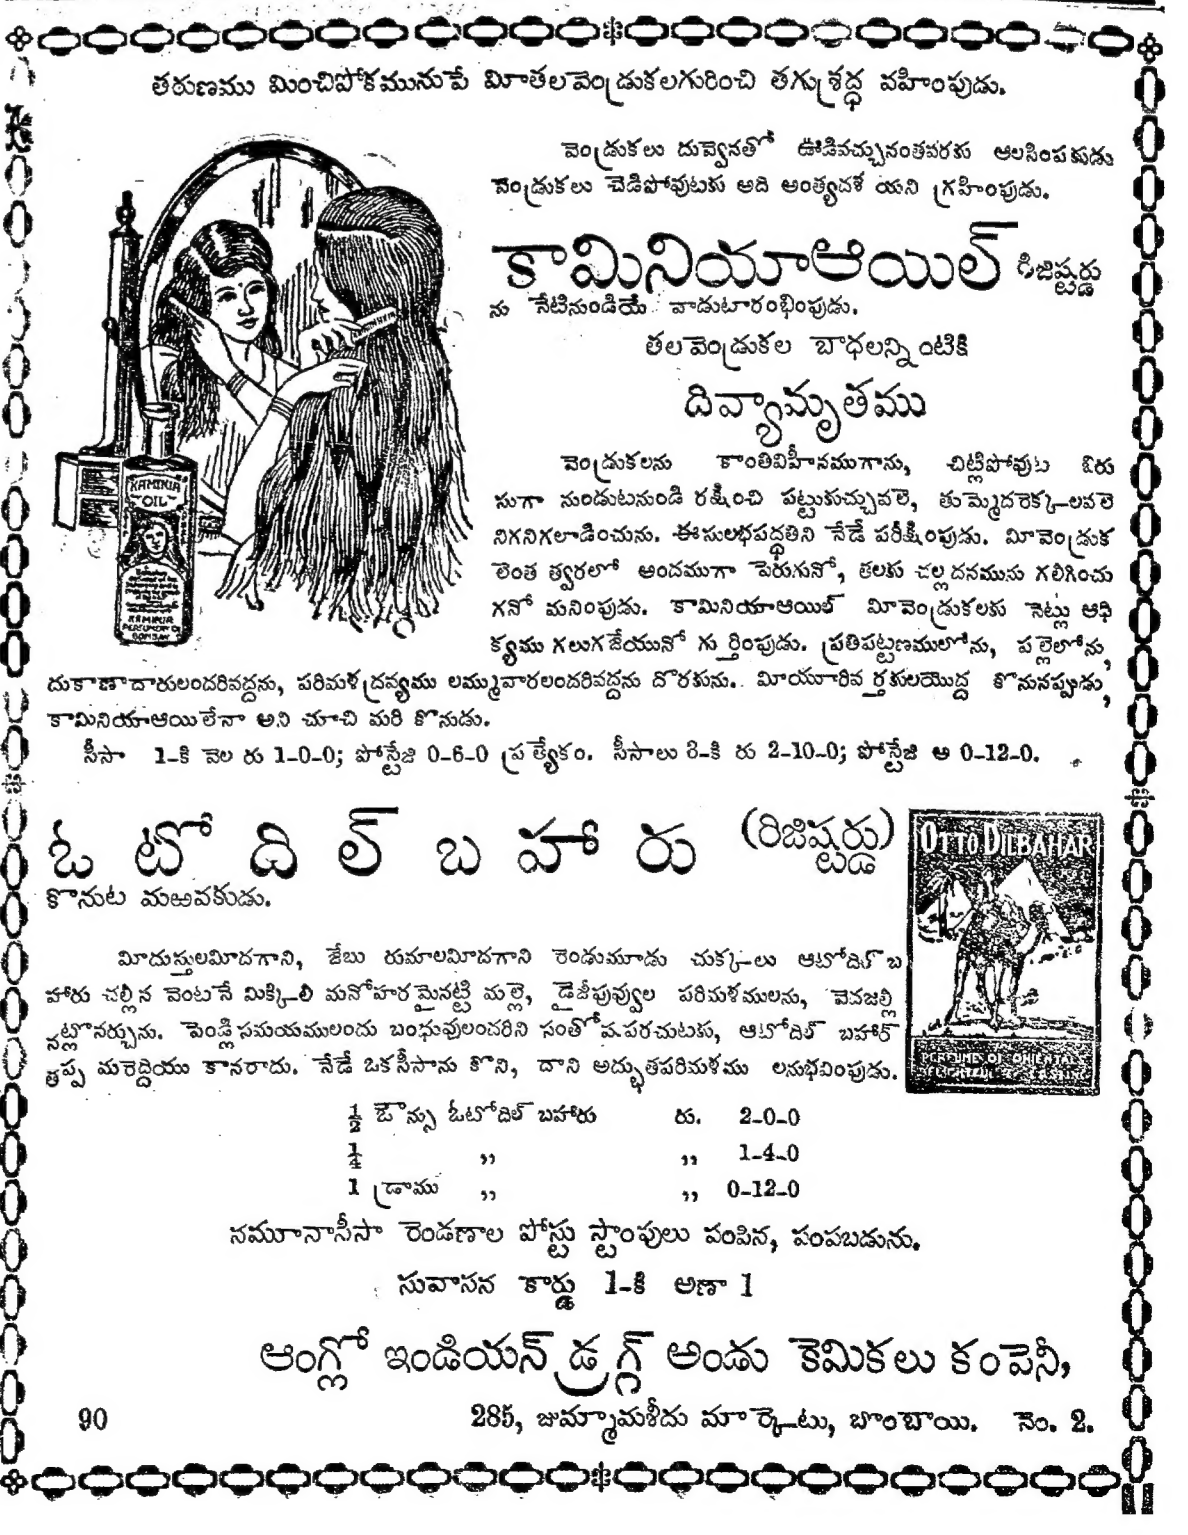 తరుణము మించిపోకమునుపే మీతలవెండ్రుకలగురించి తగుశ్రద్ధ వహింపుడు.
వెండ్రుకలు దువ్వెనతో ఊడివచ్చునంతవరకు ఆలసింపకుడు
వెండ్రుకలు చెడిపోవుటకు అది అంత్యదశ యని గ్రహింపుడు.
కామినియాఆయిల్ రిజిష్టర్డు
ను నేటినుండియే వాడుటారంభింపుడు.
తలవెండ్రుకల బాధలన్నింటికి
దివ్యామృతము
వెండ్రుకలను కాంతివిహీనముగాను, చిట్లిపోవుట ఓరు
సుగా నుండుటనుండి రక్షించి పట్టుకుచ్చువలె, తుమ్మెదరెక్కలవలె
నిగనిగలాడించును. ఈసులభపద్ధతిని నేడే పరీక్షింపుడు. మీవెండ్రుక
లెంత త్వరలో అందముగా పెరుగునో, తలకు చల్లదనమును గలిగించు
గనో మనింపుడు. కామినియాఆయిల్ మీవెండ్రుకలకు నెట్లు ఆధి
క్యము గలుగజేయునో గుర్తింపుడు. ప్రతిపట్టణములోను, పల్లెలోను,
దుకాణాదారులందరివద్దను, పరిమళద్రవ్యము లమ్మువారలందరివద్దను దొరకును. మీయూరివర్తకులయొద్ద కొనునప్పుడు,
కామినియాఆయిలేనా అని చూచి మరి కొనుడు.
సీసా 1-కి వెల రు 1-0-0; పోస్టేజి 0-6-0 ప్రత్యేకం. సీసాలు 3-కి రు 2-10-0; పోస్టేజి అ 0-12-0.
KAMINIA
OIL
KAMINIA
PERFUMERY CO
BOMBAY
ఓటోదిల్బహారు (రిజిష్టర్డు)
కొనుట మఱవకుడు.
OTTO DILBAHAR
మీదుస్తులమీదగాని, జేబు రుమాలమీదగాని రెండుమూడు చుక్కలు ఆటోదిల్ బ
హారు చల్లిన వెంటనే మిక్కిలి మనోహరమైనట్టి మల్లె, డైజీపువ్వుల పరిమళములను, వెదజల్లి
నట్లొనర్చును. పెండ్లిసమయములందు బంధువులందరిని సంతోషపరచుటకు, ఆటోదిల్ బహార్
తప్ప మరెద్దియు కానరాదు. నేడే ఒకసీసాను కొని, దాని అద్భుతపరిమళము లనుభవింపుడు.
PERFUME OF ORIENTAL
½ ఔన్సు ఓటోదిల్ బహారు రు. 2-0-0
¼ ,, ,, 1-4-0
1 డ్రాము ,, ,, 0-12-0
నమూనాసీసా రెండణాల పోస్టు స్టాంపులు పంపిన, పంపబడును.
సువాసన కార్డు 1-కి అణా 1
ఆంగ్లో ఇండియన్ డ్రగ్గ్ అండు కెమికలు కంపెనీ,
90 285, జుమ్మామశీదు మార్కెటు, బొంబాయి. నెం. 2.